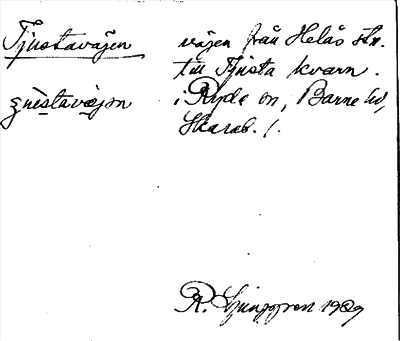 Tjustavägen vägen från Helås stn.
till Tjusta kvarn.
i Ryda sn, Barne hd,
Skarab. l.
R. Ljunggren 1929